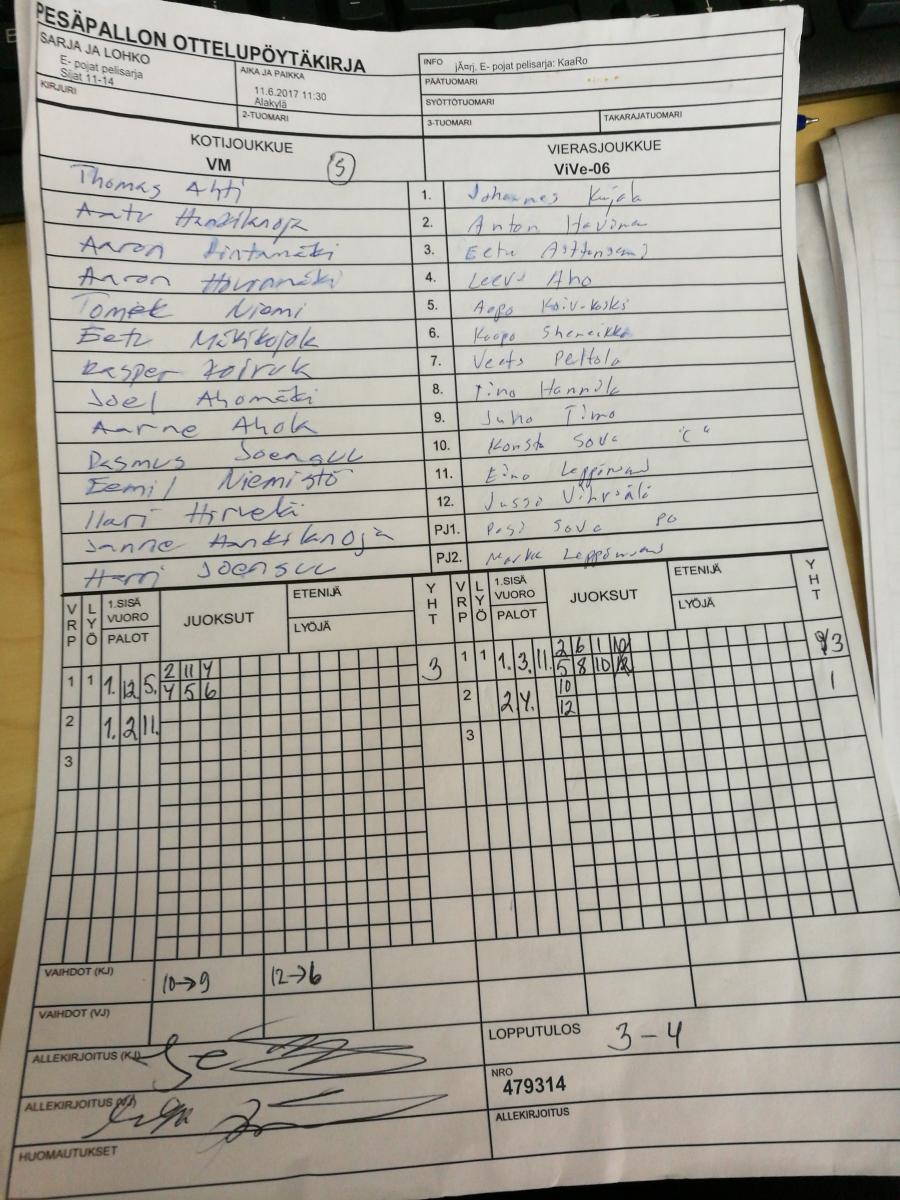 PESÄPALLON OTTELUPÖYTÄKIRJA
SARJA JA LOHKO
E- pojat pelisarja
Sijat 11-14
AIKA JA PAIKKA
11.6.2017 11:30
Alakylä
INFO jÃ¤rj. E- pojat pelisarja: KaaRo
PÄÄTUOMARI
SYÖTTÖTUOMARI
KIRJURI
2-TUOMARI
3-TUOMARI
TAKARAJATUOMARI
KOTIJOUKKUE
VM
VIERASJOUKKUE
ViVe-06
Thomas Ahti 1. Johannes Kujala
2. Anton
Aaron 3. Eetu
Aaron 4. Aho
Tomek Niemi 5. Aapo
Eetu Mäkikojola 6.
Kasper 7. Peltola
Joel Ahomäki 8. Hannila
Aarne Ahola 9. Juho Timo
Rasmus Joensuu 10. Konsta Sova "C"
Eemil Niemistö 11. Eino
Ilari Hirvelä 12. Jussi
Janne PJ1. Pasi Sova
Harri Joensuu PJ2.
VRP LYÖ 1.SISÄ VUORO PALOT JUOKSUT ETENIJÄ LYÖJÄ YHT
VRP LYÖ 1.SISÄ VUORO PALOT JUOKSUT ETENIJÄ LYÖJÄ YHT
1 1 1. 12 5. 2 11 4 3
4 5 6
2 1. 2 11.
3
1 1 1. 3. 11. 2 6 1 3
5 8 10
2 2. 4. 10 1
12
3
VAIHDOT (KJ) 10→9 12→6
VAIHDOT (VJ)
LOPPUTULOS 3-4
ALLEKIRJOITUS (KJ)
NRO
479314
ALLEKIRJOITUS (VJ)
ALLEKIRJOITUS
HUOMAUTUKSET